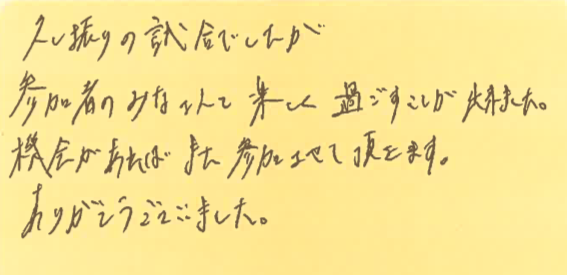 久し振りの試合でしたが
参加者のみなさんと楽しく過ごすことが出来ました。
機会があればまた参加させて頂きます。
ありがとうございました。